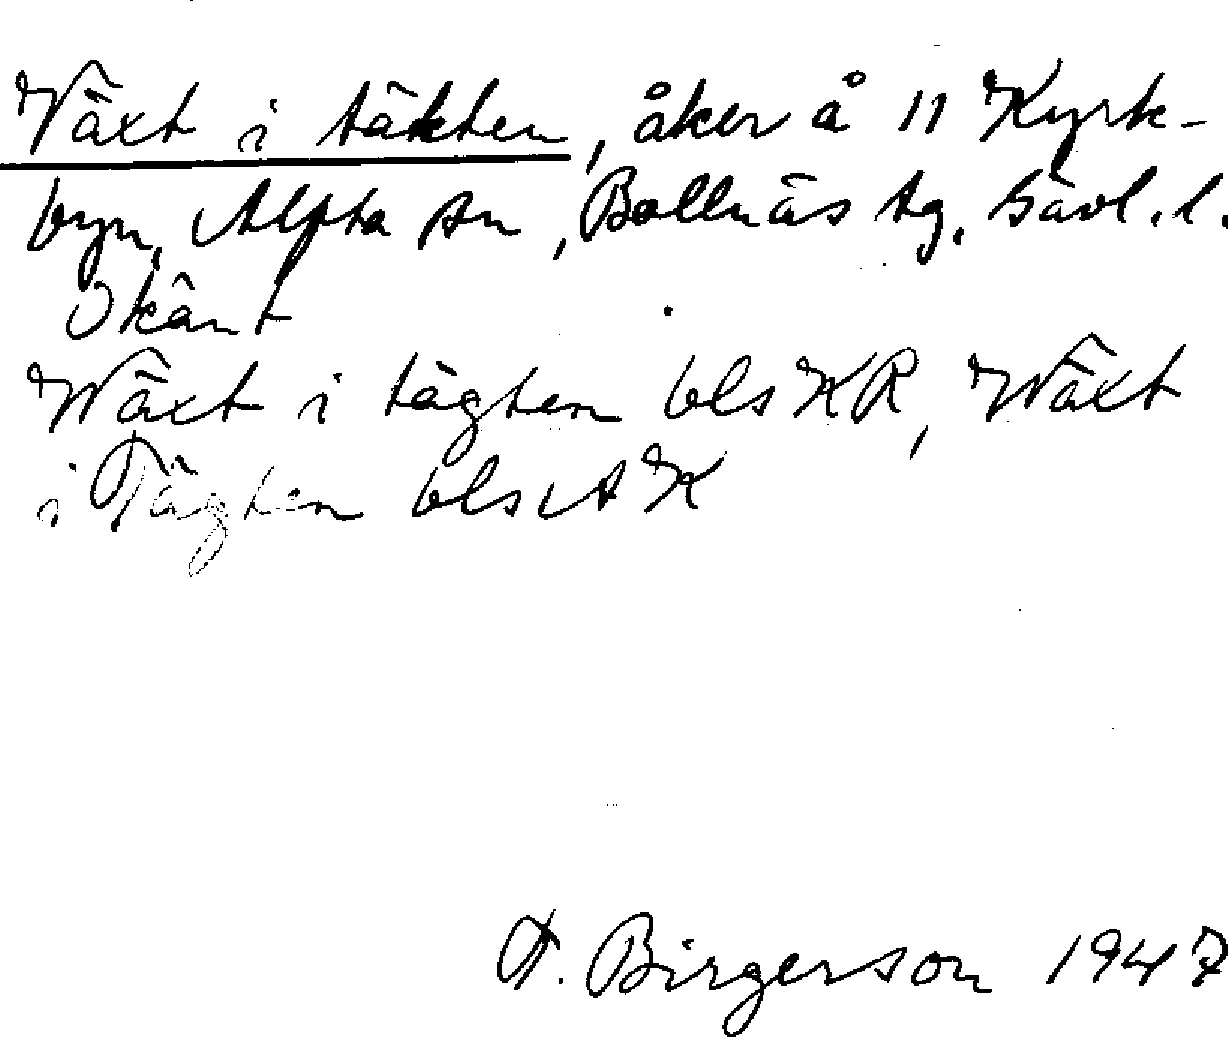 Växt i täkten, åker å 11 Kyrk-
byn, Alfta sn, Bollnäs tg, Gävl. l.
Okänt
Wäxt i tägten bls KR, Wäxt
i Tägten bls AK
F. Birgerson 1947